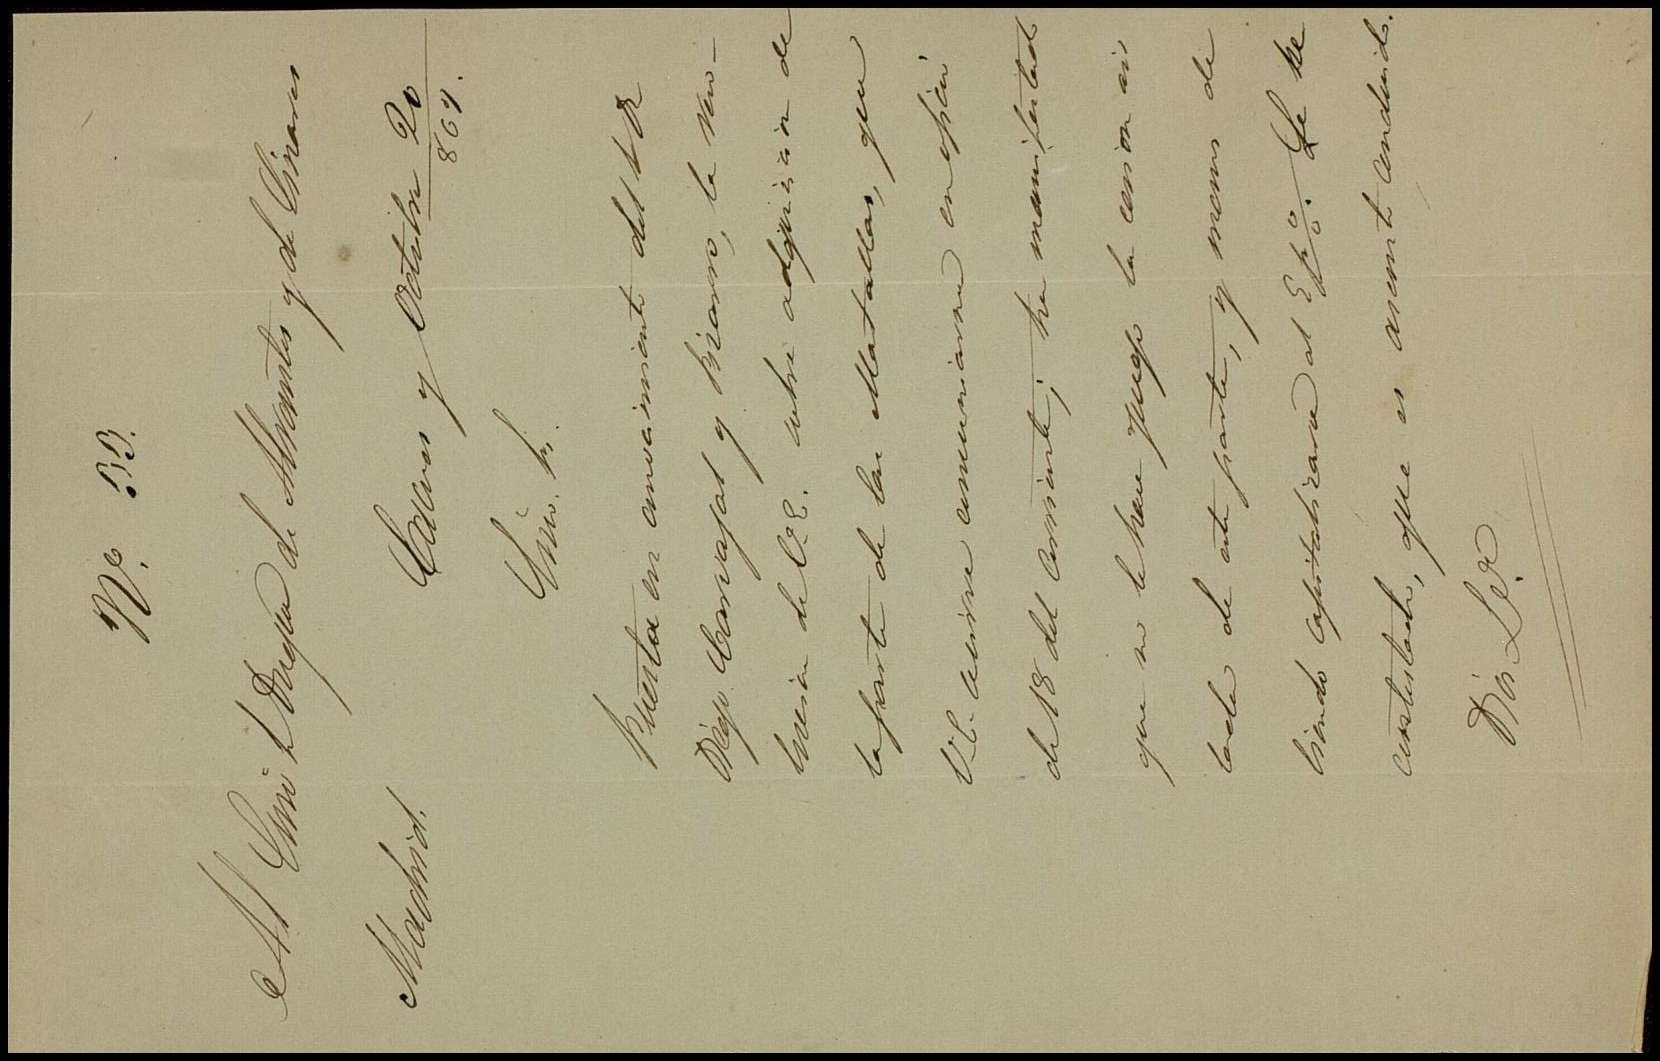 Nº. 33.
Al Exmo Sr Duque de Abrantes y de Linares
Madrid.
Cáceres y Octubre 20
869.
Exmo. Sr.
Puesta en conocimiento del Sr
Diego Carvajal y Pizarro, la reso-
lucion de V.E. sobre adquisicion de
la parte de las Matallas, que
V.E. se sirve comunicarme en oficio
de 18 del corriente; ha manifestado
que no le hace juego la cesion ais
lada de esta parte, y menos de
biendo capitalizarse al 3 p%. Le he
contestado, que es asunto concluido.
Dios &ª.